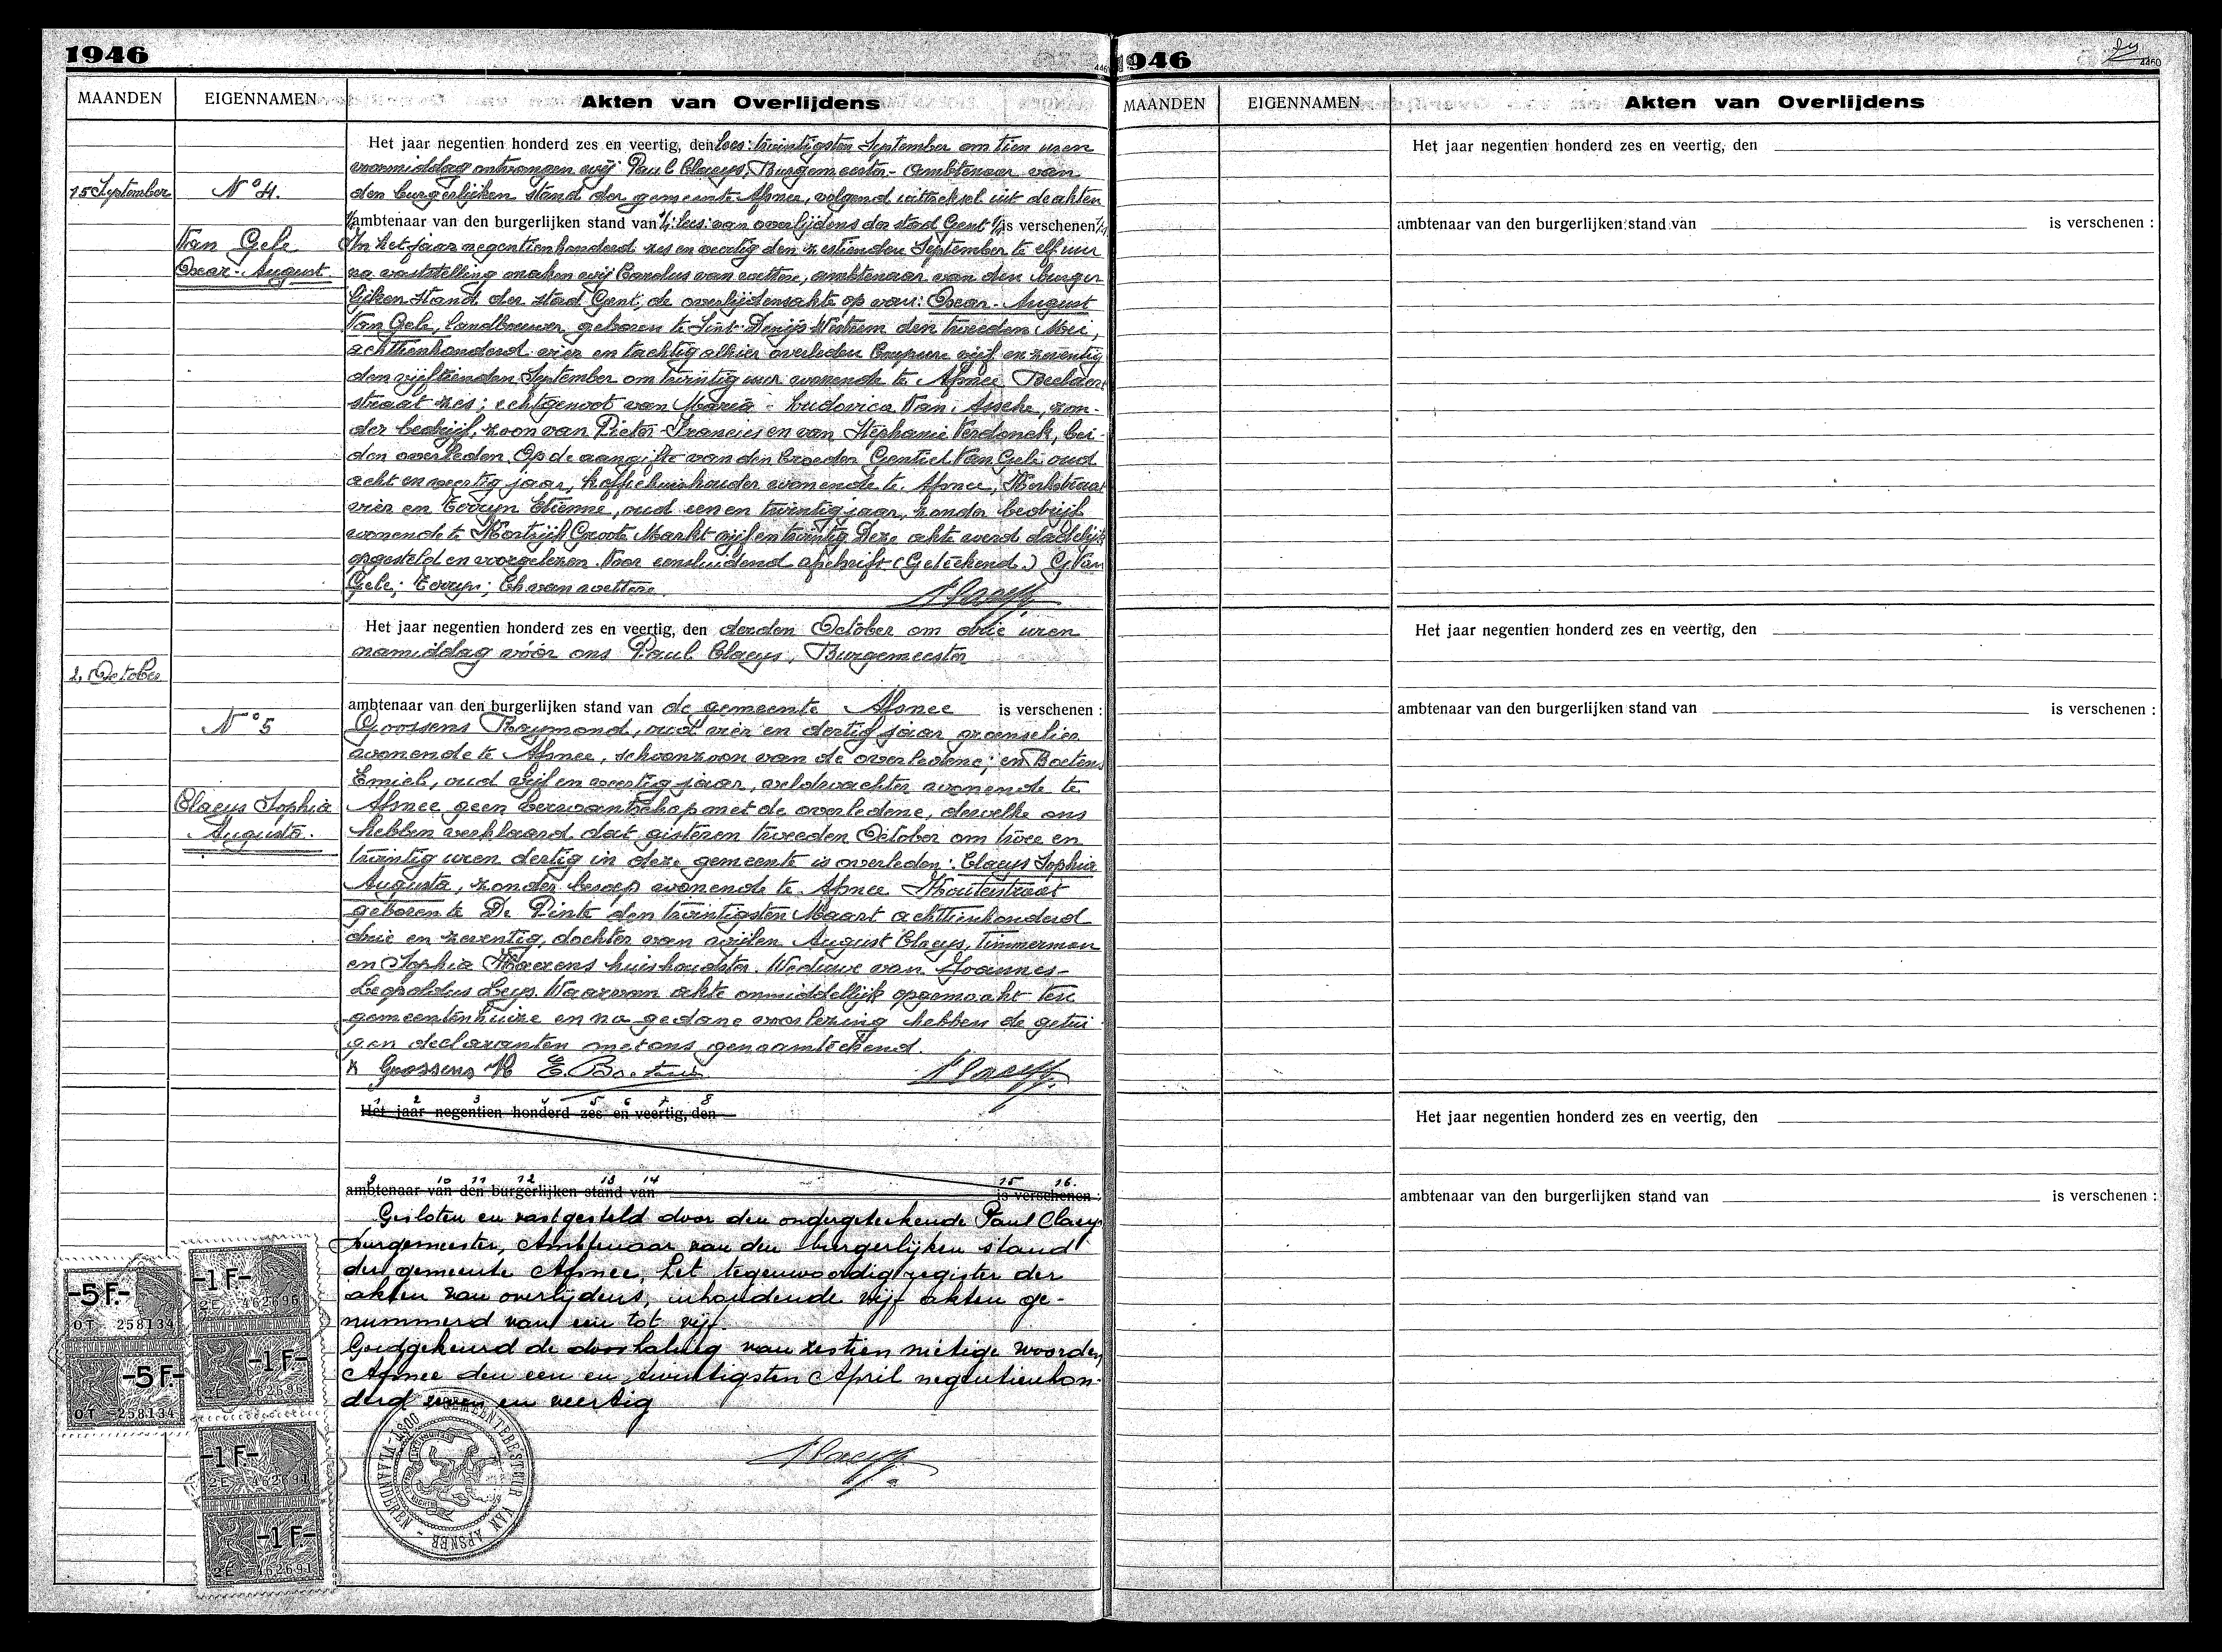 1946
MAANDEN EIGENNAMEN Akten van Overlijdens
Het jaar negentien honderd zes en veertig, den lees: twintigsten September om tien uren
voormiddag ontvangen wij Paul Claeys, Burgemeester - Ambtenaar van
15 September N° 4. den burgerlijken stand der gemeente Afsnee, volgend uittreksel uit de akten
ambtenaar van den burgerlijken stand van lees: van overlijdens der stad Gent is verschenen
Van Gele
Oscar-August
In het jaar negentienhonderd zes en veertig den zestienden September te elf uur
na vaststelling maken wij Carolus van wettere, ambtenaar van den burger
lijken stand der stad Gent, de overlijdensakte op van: Oscar-August
Van Gele, landbouwer geboren te Sint-Denijs Westrem den tweeden Mei,
achttienhonderd vier en tachtig alhier overleden Coupure vijf en zeventig
den vijftienden September om twintig uur wonende te Afsnee Beelaere
straat zes; echtgenoot van Maria-Ludovica Van Assche, zon-
der bedrijf, zoon van Pieter-Francies en van Stephanie Verdonck, bei-
den overleden. Op de aangifte van den broeder Gentiel Van Gele oud
acht en veertig jaar, koffiehuishouder wonende te Afsnee, Kerkstraat
vier en Étienne, oud een en twintig jaar, zonder bedrijf
wonende te Kortrijk Groote Markt vijf en twintig. Deze akte werd dadelijk
opgesteld en voorgelezen. Voor eensluidend afschrift (Geteekend) G. Van
Gele; Ch van wettere.
Claeys
Het jaar negentien honderd zes en veertig, den derden October om drie uren
namiddag vóór ons Paul Claeys, Burgemeester
2. October
ambtenaar van den burgerlijken stand van de gemeente Afsnee is verschenen :
N° 5
Claeys Sophia
Augusta.
Goossens Raymond, oud vier en dertig jaar groenselier
wonende te Afsnee, schoonzoon van de overledene; en Boetens
Emiel, oud vijf en veertig jaar, veldwachter wonende te
Afsnee geen verwantschap met de overledene, dewelke ons
hebben verklaard dat gisteren tweeden October om twee en
twintig uren dertig in deze gemeente is overleden: Claeys Sophia
Augusta, zonder beroep wonende te Afsnee Kouterstraat
geboren te De Pinte den twintigsten Maart achttienhonderd
drie en zeventig, dochter van wijlen August Claeys, Timmerman
en Sophia Haerens huishoudster. Weduwe van Joannes-
Leopoldus Leys. Waarvan akte onmiddellijk opgemaakt ten
gemeentenhuize en na gedane voorlezing hebben de getui
gen declaranten met ons genaamteekend.
x Goossens R E. Boetens Claeys
1 2 3 4 5 6 7 8
Het jaar negentien honderd zes en veertig, den
9 10 11 12 13 14 15 16.
ambtenaar van den burgerlijken stand van is verschenen :
Gesloten en vastgesteld door den ondergeteekende Paul Claeys
burgemeester, Ambtenaar van den burgerlijken stand
der gemeente Afsnee, het tegenwoordig register der
akten van overlijdens, inhoudende vijf akten ge-
nummerd van een tot vijf.
Goedgekeurd de doorhaling van zestien nietige woorden
Afsnee den een en twintigsten April negentienhon-
derd zeven en veertig
Claeys
-5 F.-
OT 258134
-5 F.-
OT 258134
-1 F-
2E 462696
-1 F-
2E 462696
-1 F-
2E 462691
-1 F.-
2E 462691
GEMEENTEBESTUUR VAN AFSNEE - OOST-VLAANDEREN
1946
4460
MAANDEN EIGENNAMEN Akten van Overlijdens
Het jaar negentien honderd zes en veertig, den
ambtenaar van den burgerlijken stand van is verschenen :
Het jaar negentien honderd zes en veertig, den
ambtenaar van den burgerlijken stand van is verschenen :
Het jaar negentien honderd zes en veertig, den
ambtenaar van den burgerlijken stand van is verschenen :